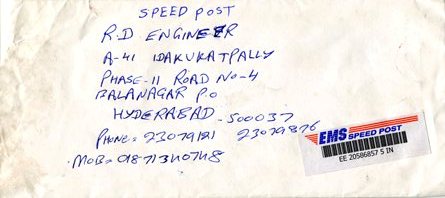 SPEED POST
R.D ENGINEER
A-41 IDAKUKATPALLY
PHASE-11 ROAD No-4
BALANAGAR P.O
HYDERABAD - 500037
PHONE: 23079181 23079876
EMS SPEED POST
EE 20586857 5 IN